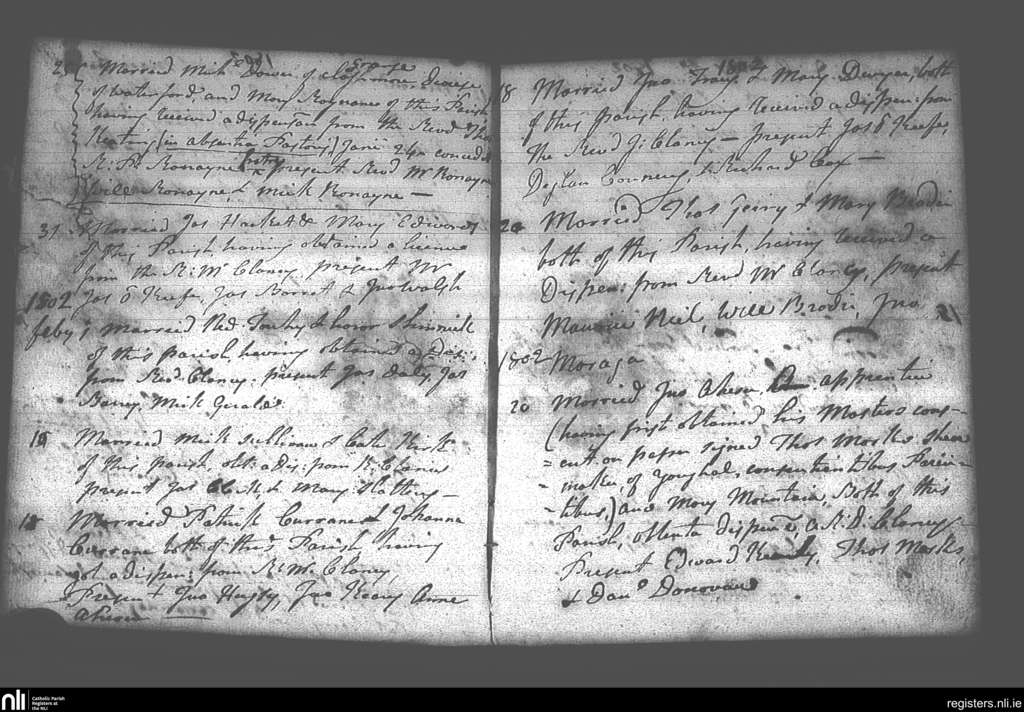 Married Mick Dower of Clashmore, Diocese
of waterford, and Mary Ronayne of this Parish
having received a dispensa from the Revd Tho
Keating (in absentia Pastoris) Jan: 24
R. Ronayne present Revd Mr Ronayne
Will Ronayne & Mick Ronayne —
31 Married Jas Hackett & Mary Edwards
of this Parish, having obtained a licence
from the R: Mr Clancy. present Mr
Jas O Keefe, Jas Barret & Jno Walsh
1802
feby Married Red. & honor Shinnick
of this parish, having obtained a Dis:
from Revd: Clancy. present Jas Daly, Jas
Barry, Mick
Married Mick Sullivan & Cath
of this parish, obt: a dis: from R. Clancy
present Jas & Mary Slattery —
18 Married Patrick Currane & Johanna
Currane both of this Parish having
got a dispen: from R: Mr Clancy,
Present Jno Jno Keary Anne
Ahern
1802
18 Married Jno & Mary Dwyer, both
of this parish, having received a dispen: from
the Revd J: Clancy — present Jas O Keefe,
Deglan & Richard Coy —
20 Married Thos Terry & Mary Brodri
both of this Parish, having received a
Dispen: from Revd Mr Clancy, present
Maurice Neil, Will Brodri, Jno
1802 Moraga
20 Married Jno Ahern apprentice
(having first obtained his Masters cons-
=ent on paper signed Thos Marks
=maker, of Youghal, consentientibus Paren-
-tibus,) and Mary Mountain, Both of this
Parish, obtenta dispense a R. D: Clancy
Present Edward Thos Marks,
& Danl Donovan
nli
Catholic Parish
Registers at
the NLI
registers.nli.ie